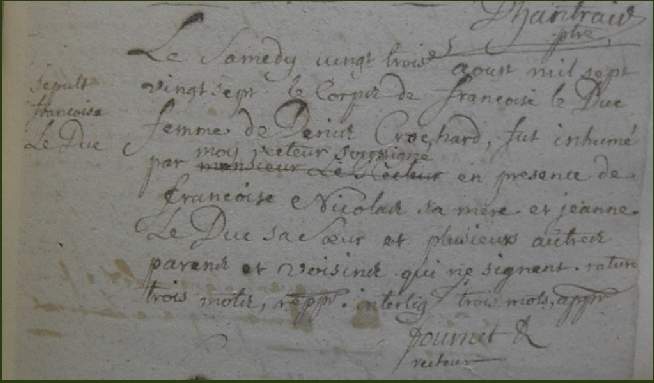 ptre
Le Samedy vingt trois aoust mil sept
sepult
françoise
Le Duc
vingt sept le Corps de françoise le Duc
femme de Denis Crochard, fut inhumé
par monsieur Le Recteur moy recteur soussigne en presence de
françoise Nicolas sa mere et jeanne
Le Duc sa sœur et plusieurs autres
parens et voisins qui ne signent. rature
trois mots, interlig trois mots,
recteur